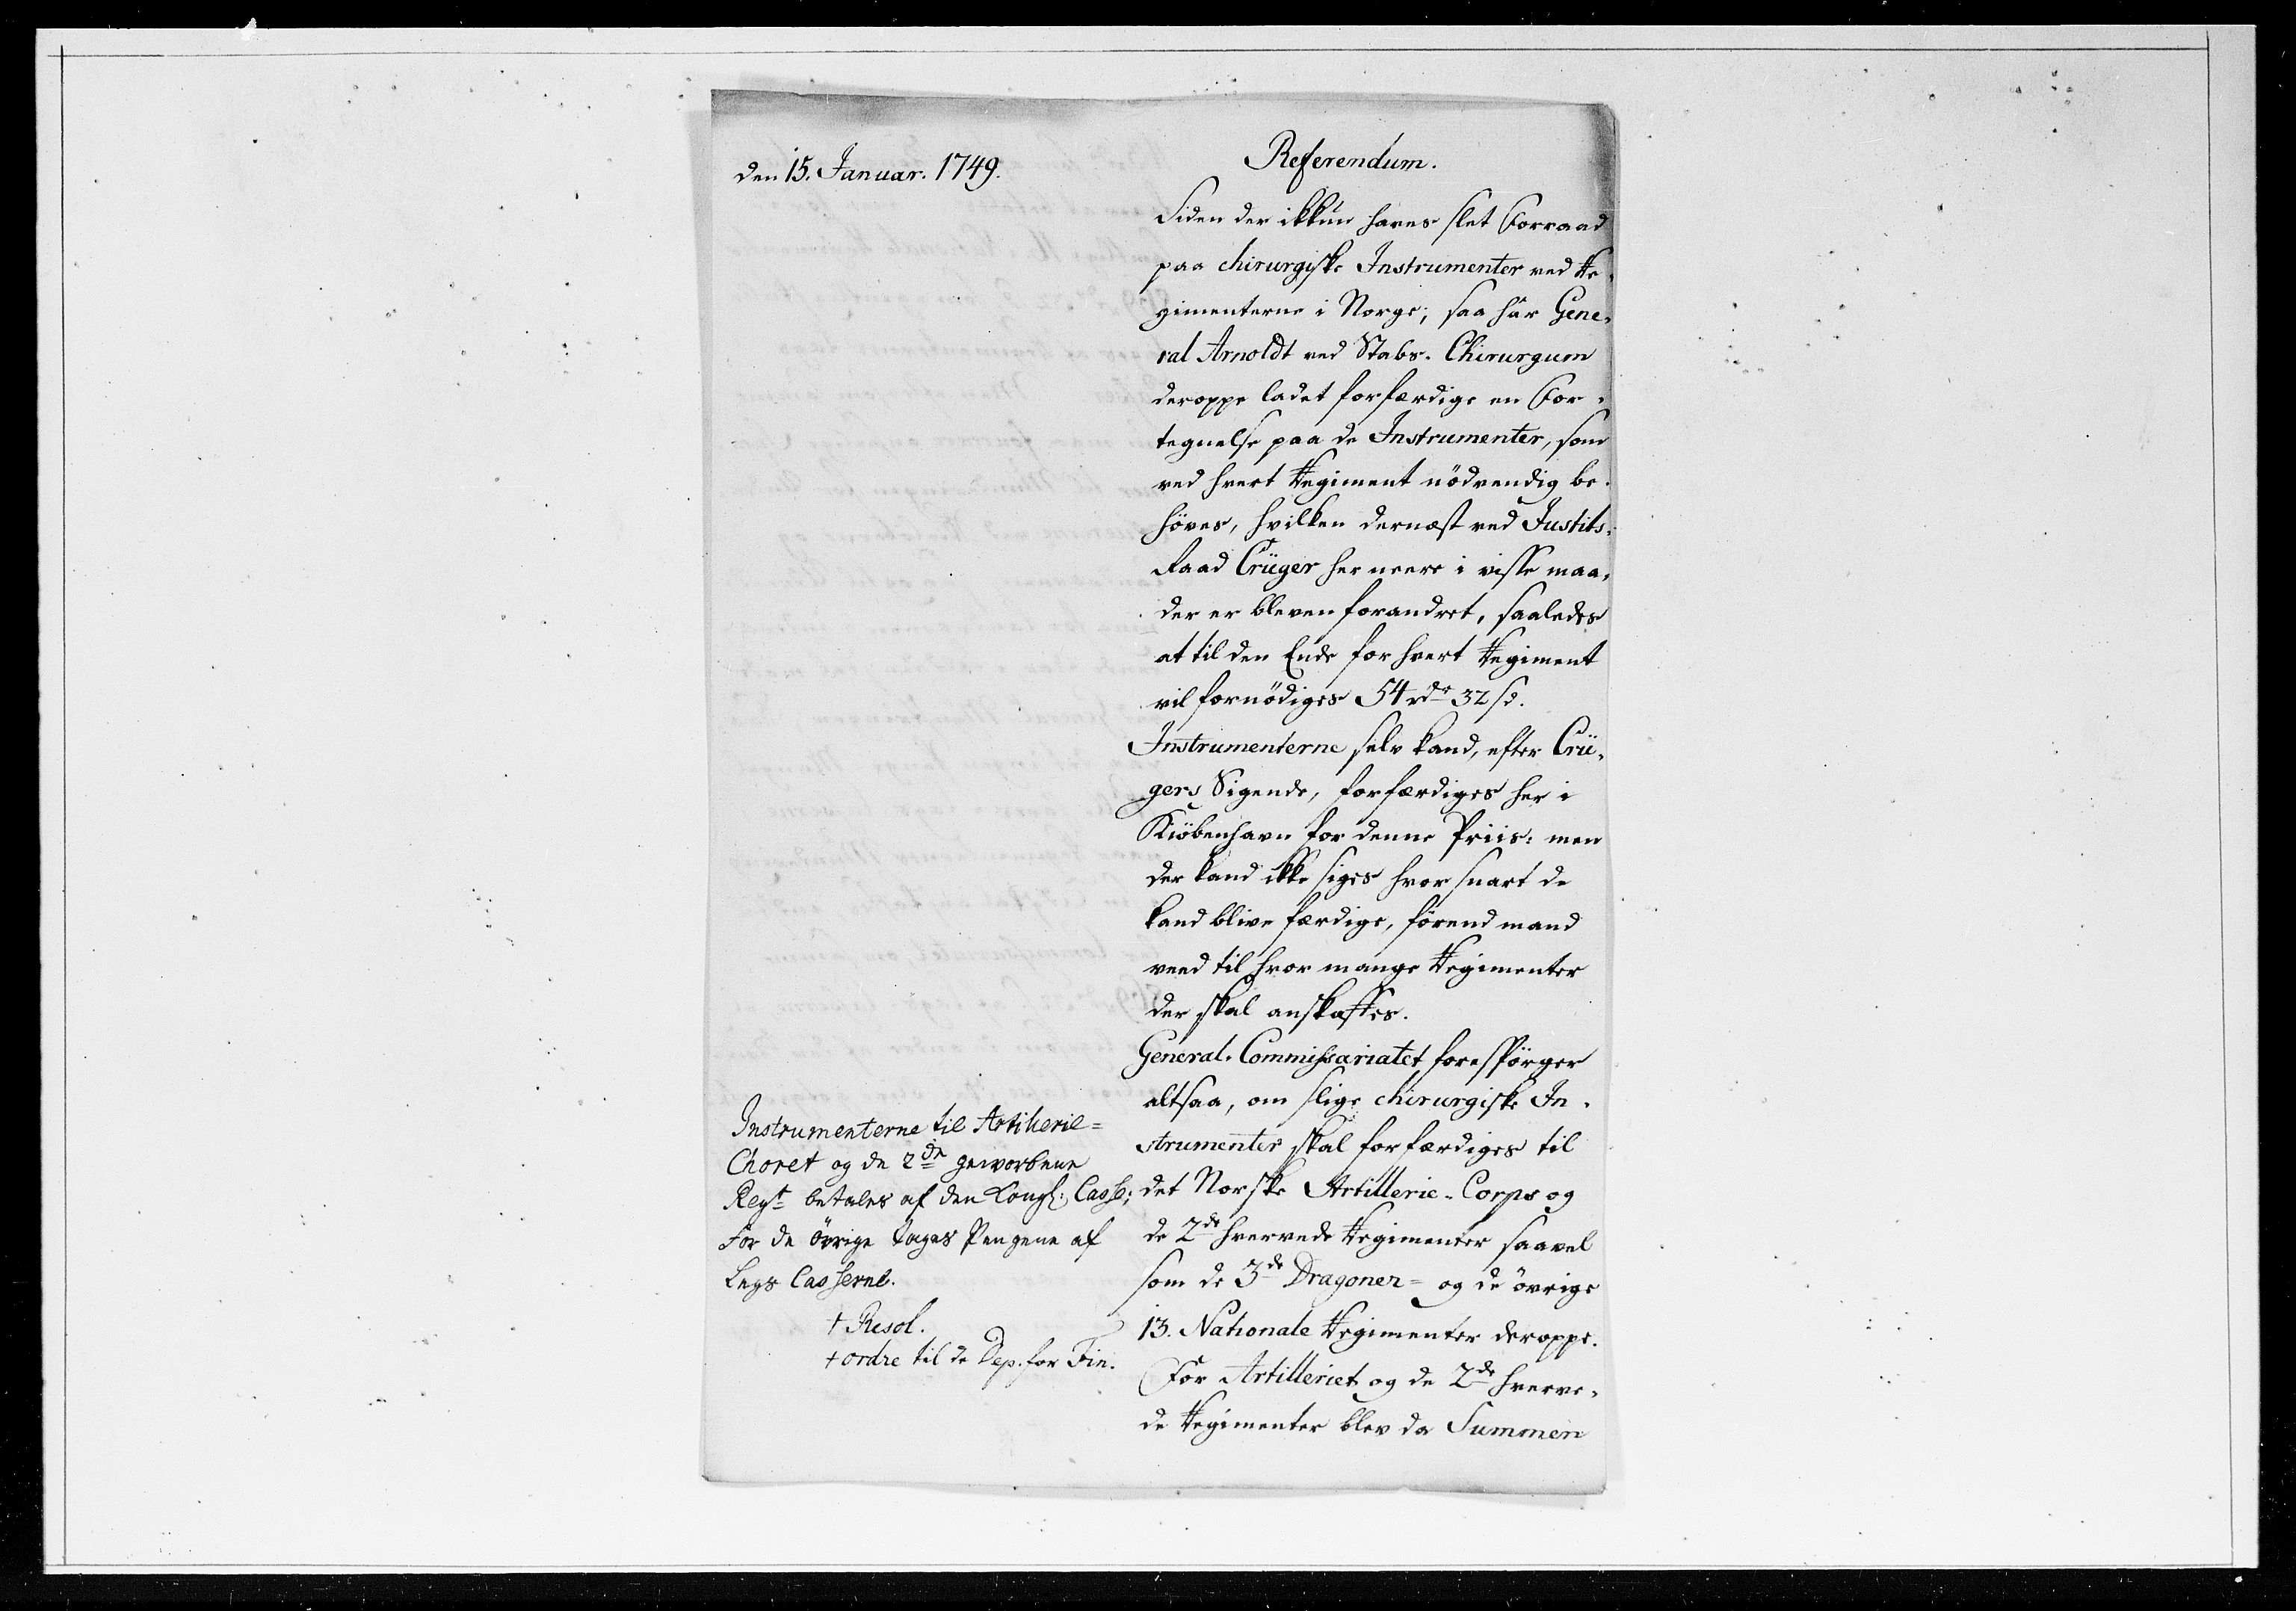 den 15. Januar. 1749.
Referendum.
Siden der ikkun haves slet Forraad
paa chirurgiske Instrumenter ved Re-
gimenterne i Norge, saa har Gene-
ral Arnoldt ved Stabs-Chirurgum
deroppe ladet forfærdige en For-
tegnelse paa de Instrumenter, som
ved hvert Regiment nödvendig be-
höves, hvilken dernæst ved Justits-
Raad Crüger her neere i visse maa-
der er bleven forandret, saaledes
at til den Ende for hvert Regiment
vil fornödiges 54 rdr 32 s.
Instrumenterne selv kand, efter Crü-
gers Sigende, forfærdiges her i
Kiöbenhavn for denne Priis: men
der kand ikke siges hvor snart de
kand blive færdige, förend mand
veed til hvor mange Regimenter
der skal anskaffes.
General-Commissariatet forespörger
altsaa, om slige chirurgiske In-
strumenter skal forfærdiges til
det Norske Artillerie-Corps og
de 2de hvervede Regimenter saavel
som de 3de Dragoner- og de övrige
13. Nationale Regimenter deroppe.
For Artilleriet og de 2de hverve-
de Regimenter blev da Summen
Instrumenterne til Artillerie=
Choret og de 2de geworbene
Regt betales af den Kongl: Casse;
for de övrige tages Pengene af
Lægs Casserne.
† Resol.
† ordre til de Dep. for Fin.